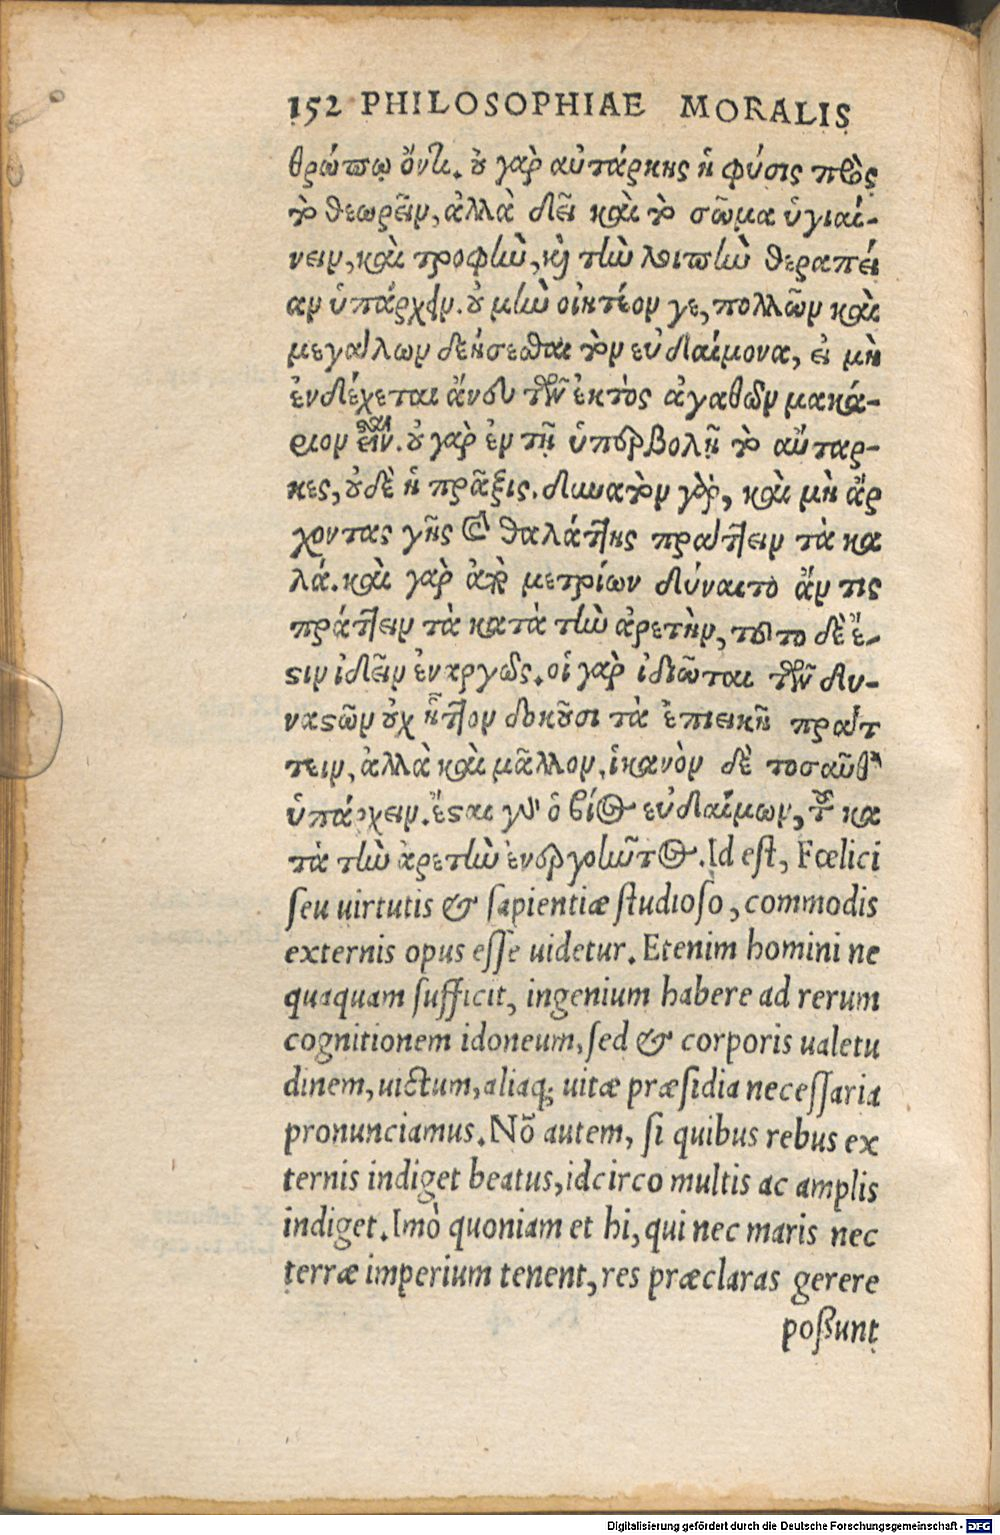 152 PHILOSOPHIAE MORALIS
θρώπῳ ὄντι. οὐ γὰρ αὐτάρκης ἡ φύσις πρὸς
τὸ θεωρεῖν, ἀλλὰ δεῖ καὶ τὸ σῶμα ὑγιαί-
νειν, καὶ τροφὴν, καὶ τὴν λοιπὴν θεραπεί
αν ὑπάρχειν. οὐ μὴν οἰητέον γε, πολλῶν καὶ
μεγάλων δεήσεσθαι τὸν εὐδαίμονα, εἰ μὴ
ἐνδέχεται ἄνευ τῶν ἐκτὸς ἀγαθῶν μακά-
ριον εἶναι. οὐ γὰρ ἐν τῇ ὑπερβολῇ τὸ αὔταρ-
κες, οὐδὲ ἡ πρᾶξις. δυνατὸν γὰρ, καὶ μὴ ἄρ
χοντας γῆς καὶ θαλάττης πράττειν τὰ κα
λά. καὶ γὰρ ἀπὸ μετρίων δύναιτο ἄν τις
πράττειν τὰ κατὰ τὴν ἀρετὴν, τοῦτο δὲ ἔ-
στιν ἰδεῖν ἐναργῶς. οἱ γὰρ ἰδιῶται τῶν δυ-
ναστῶν οὐχ ἧττον δοκοῦσι τὰ ἐπιεικῆ πράτ
τειν, ἀλλὰ καὶ μᾶλλον. ἱκανὸν δὲ τοσαῦθ'
ὑπάρχειν. ἔσται γὰρ ὁ βίος εὐδαίμων, τοῦ κα
τὰ τὴν ἀρετὴν ἐνεργοῦντος. Id est, Fœlici
seu uirtutis & sapientiæ studioso, commodis
externis opus esse uidetur. Etenim homini ne
quaquam sufficit, ingenium habere ad rerum
cognitionem idoneum, sed & corporis ualetu
dinem, uictum, aliaq; uitæ præsidia necessaria
pronunciamus. Nõ autem, si quibus rebus ex
ternis indiget beatus, idcirco multis ac amplis
indiget. Imò quoniam et hi, qui nec maris nec
terræ imperium tenent, res præclaras gerere
possunt
Digitalisierung gefördert durch die Deutsche Forschungsgemeinschaft - DFG